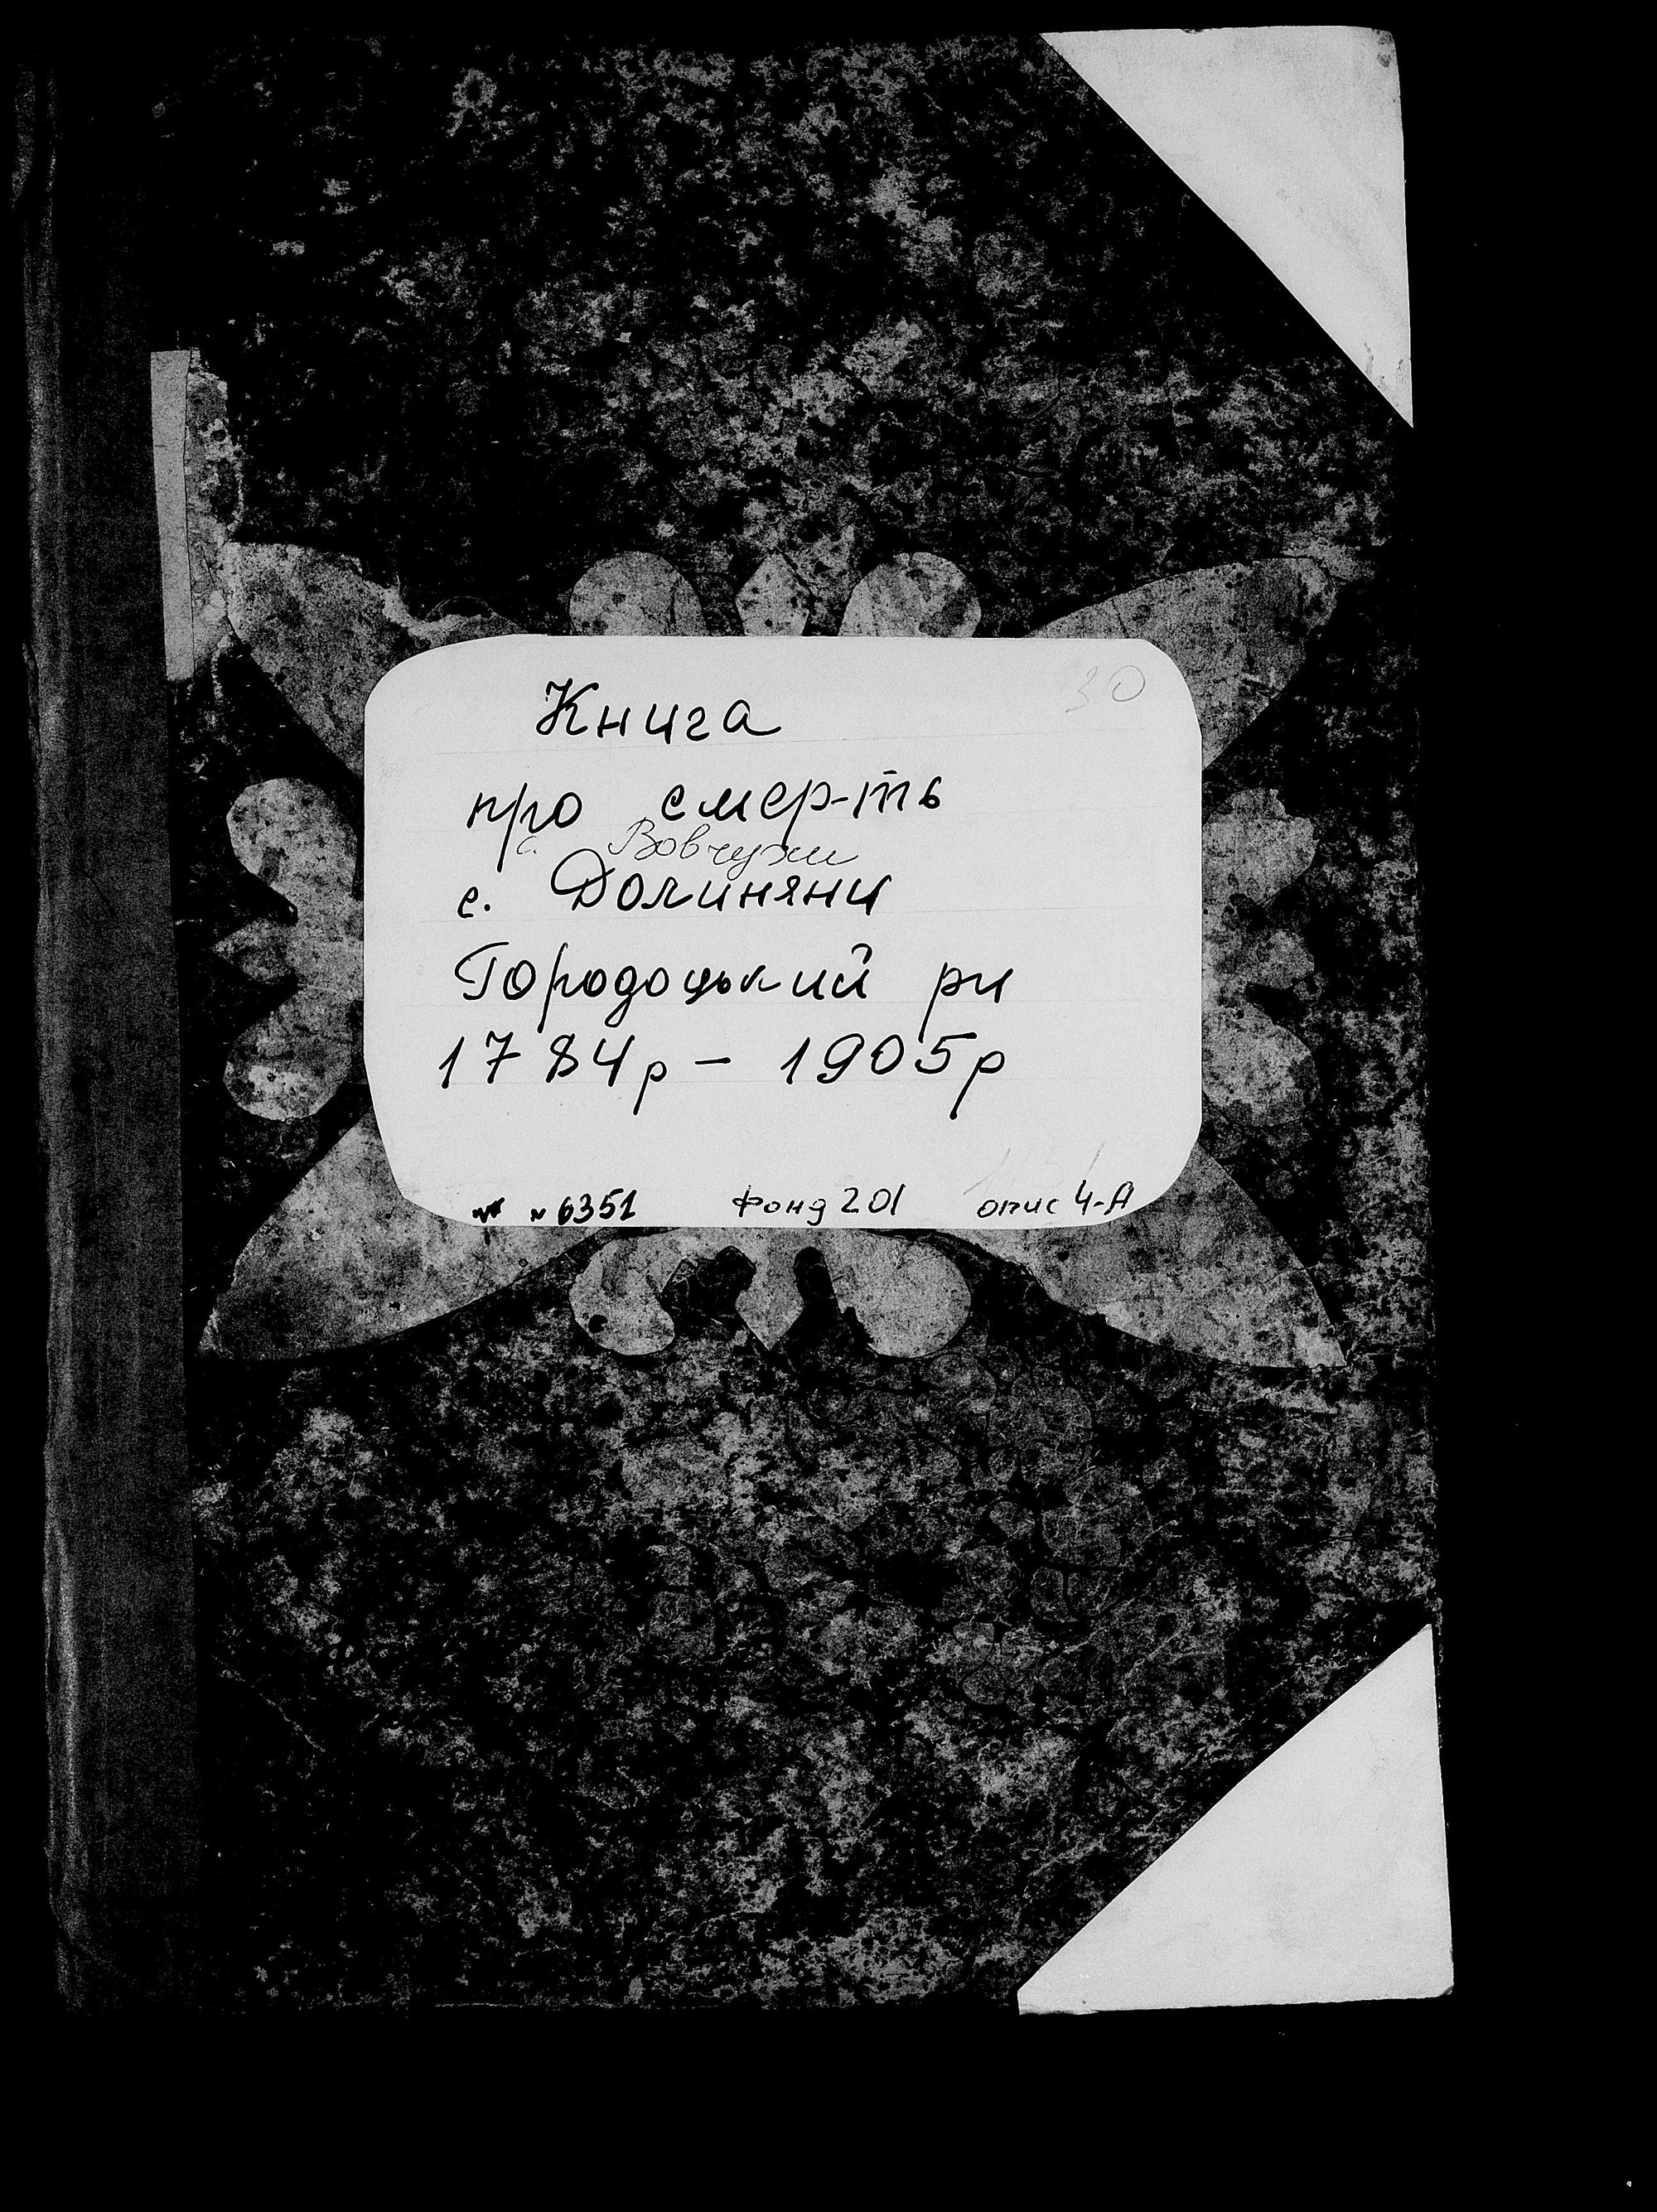 30
Книга
про смерть
с. Вовчухи
с. Долиняни
Городоцький рн
1784р – 1905р
№ 6351 Фонд 201 опис 4-А